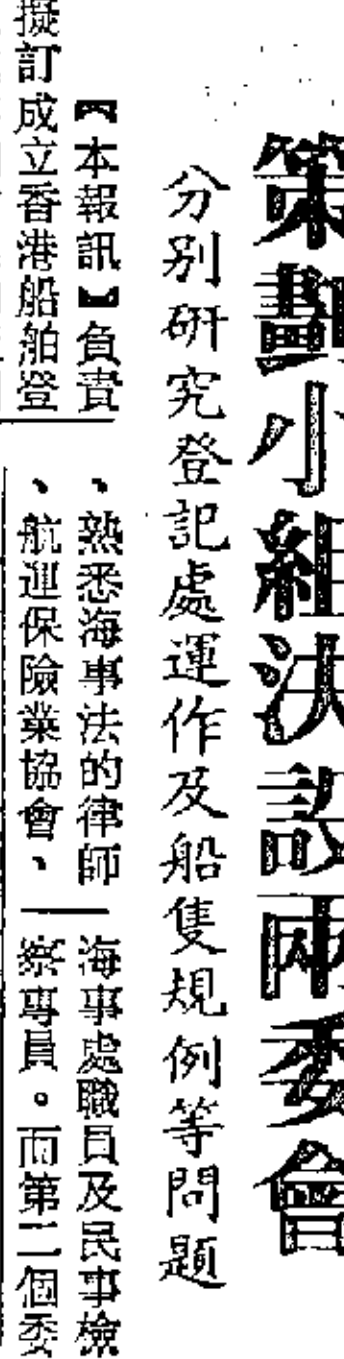 策劃小組決設兩委會
分別研究登記處運作及船隻規例等問題
【本報訊】負責
擬訂成立香港船舶登
、熟悉海事法的律師
、航運保險業協會、
海事處職員及民事檢
察專員。而第二個委